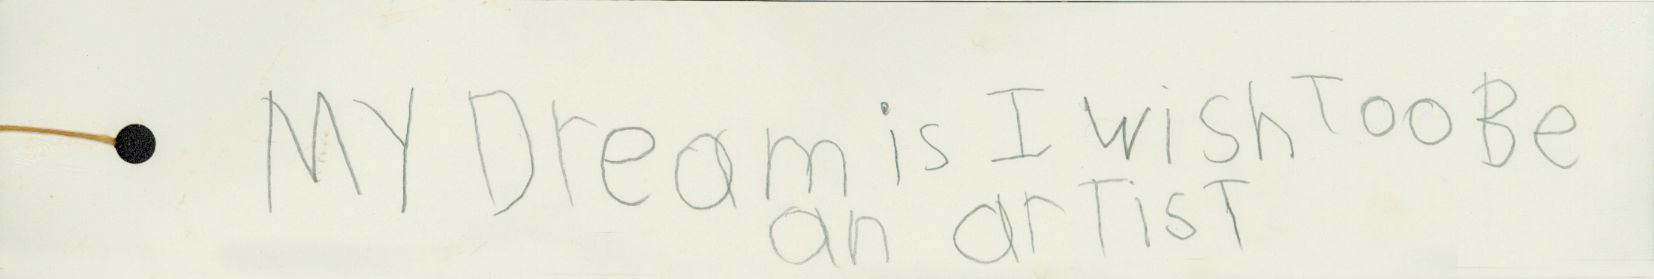 MY Dream is I wish Too Be
an arTisT